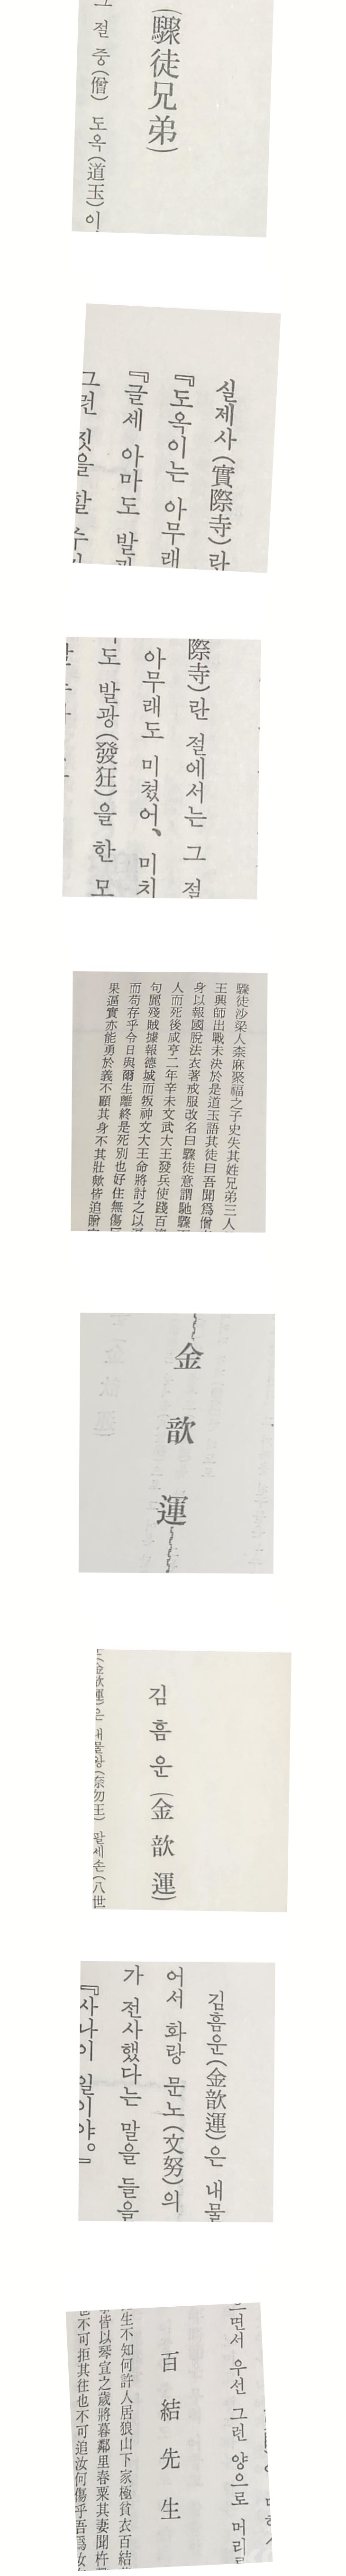 (驟徒兄弟)
그 절 중(僧) 도옥(道玉)이
실제사(實際寺)란
『도옥이는 아무래
『글세 아마도 발광
그런 짓을 할 수
際寺)란 절에서는 그 절
아무래도 미쳤어、미치
도 발광(發狂)을 한 모
驟徒沙梁人柰麻聚福之子史失其姓兄弟三人
王興師出戰未決於是道玉語其徒曰吾聞爲僧
身以報國脫法衣著戎服改名曰驟徒意謂馳驟
人而死後咸亨二年辛未文武大王發兵使踐百
句麗殘賊據報德城而叛神文大王命將討之以
而苟存乎今日與爾生離終是死別也好住無傷
果逼實亦能勇於義不顧其身不其壯歟皆追贈
金歆運
김흠운(金歆運)
(金歆運)은 내물왕(奈勿王) 팔세손(八世
김흠운(金歆運)은 내물
어서 화랑 문노(文努)의
가 전사했다는 말을 들을
『사나이 일이야。』
으면서 우선 그런 양으로 머리
百結先生
生不知何許人居狼山下家極貧衣百結
皆以琴宣之歲將暮鄰里舂粟其妻聞杵
也不可拒其往也不可追汝何傷乎吾爲汝